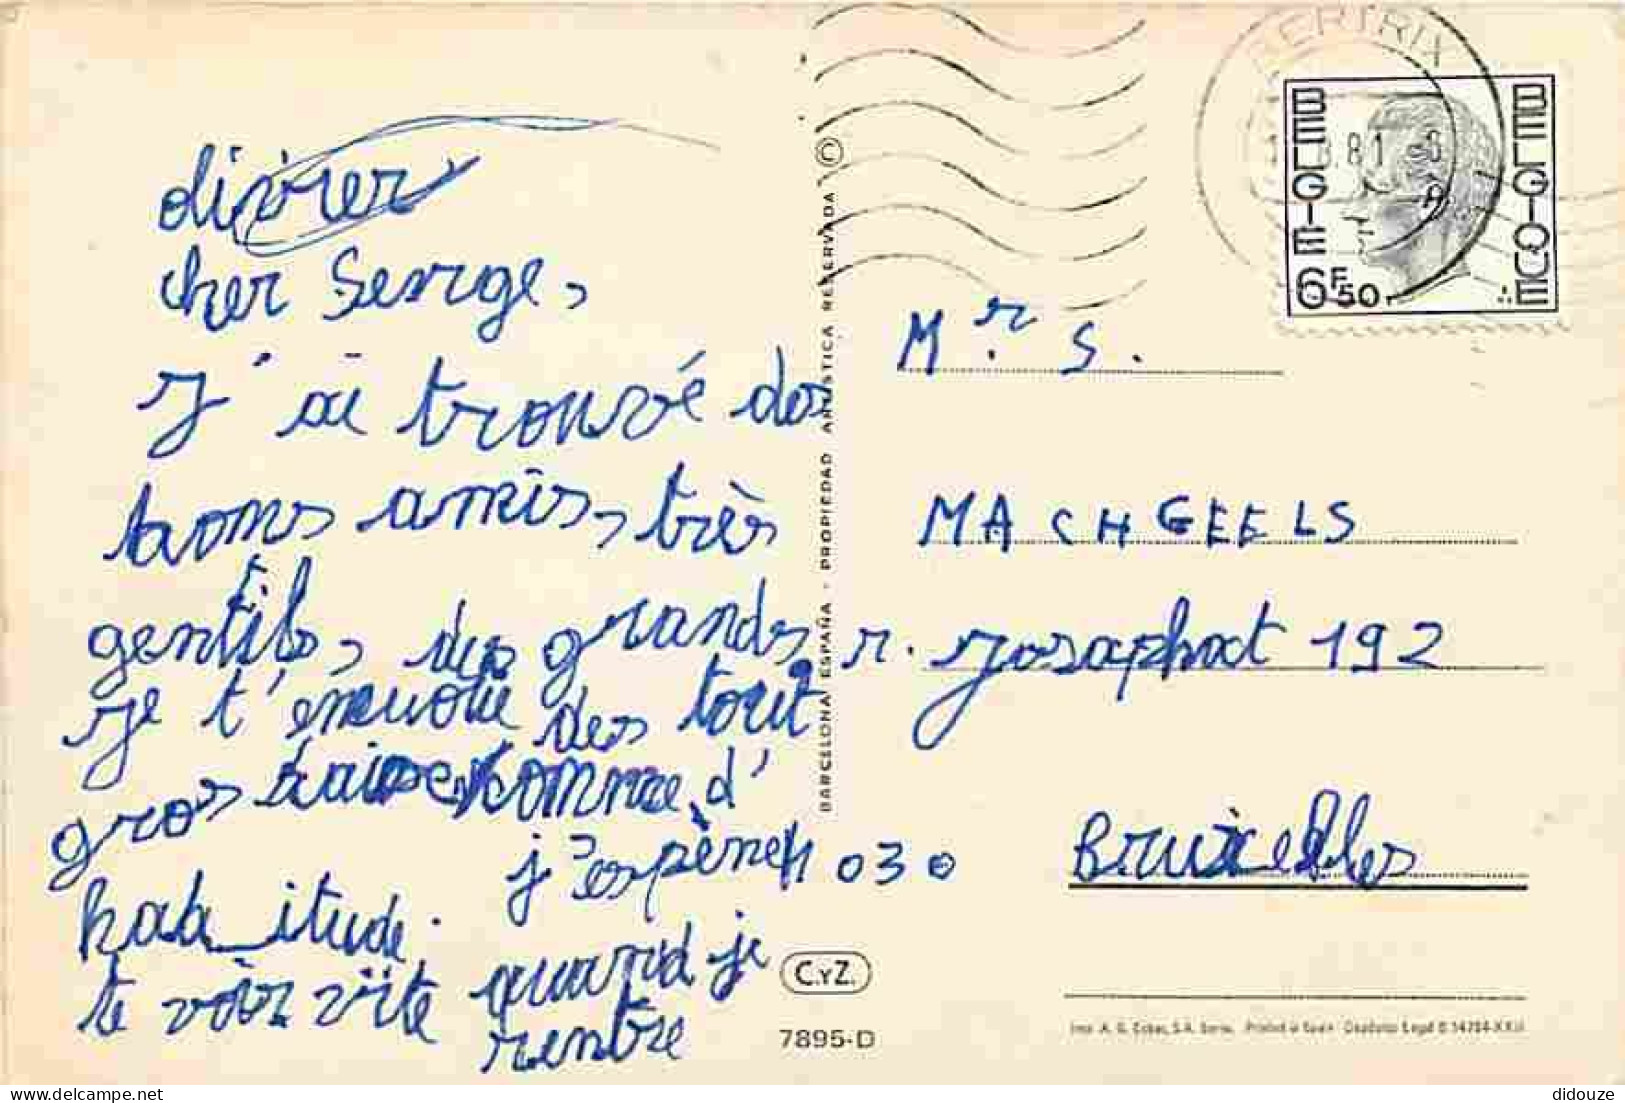 olivier
cher Serge,
J'ai trouvé des
bons amis, très
gentils, des grands
je t'envoie des tout
gros homme d'
habitude. j'espère
te voir vite quand je
rentre
BARCELONA ESPAÑA - PROPIEDAD ARTÍSTICA RESERVADA ©
BERTRIX
81
BELGIE
BELGIQUE
6F50
Mr. S.
MACHGEELS
r. Josaphat 192
1030 Bruxelles
C.YZ.
7895-D
Imp. A. G. Printed in Spain Depósito Legal B
didouze